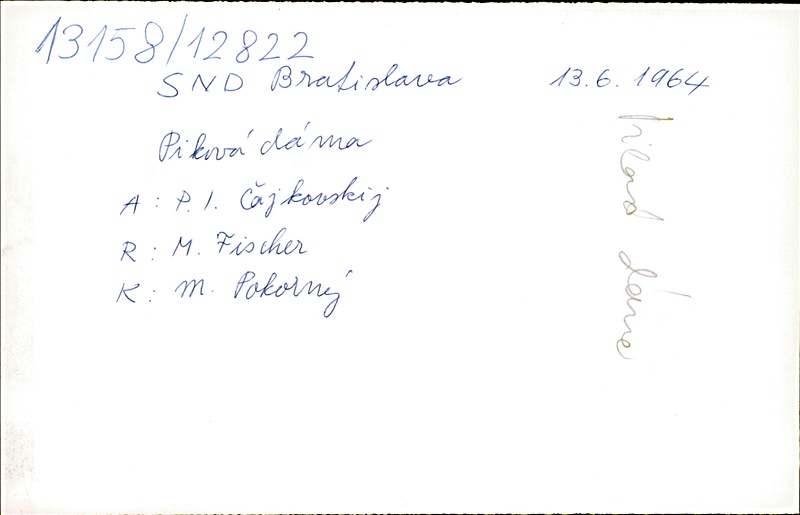 13158/12822
SND Bratislava 13.6.1964
Piková dáma
A: P. I. Čajkovskij
R: M. Fischer
K: M. Pokorný